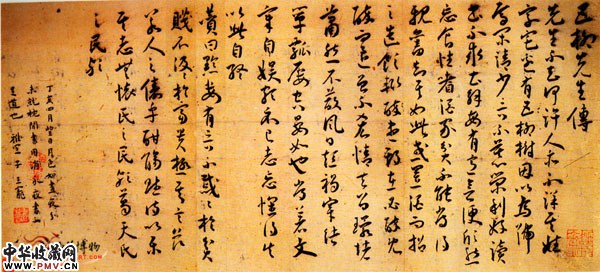 五柳先生傳
先生不知何許人不詳其姓
字宅邊有五柳樹因以為號
焉閑靖少言不慕榮利好讀
書不求甚解每有意會便欣然
忘食性嗜酒家貧不能常得
親舊知其如此或置酒而招
之造飲輒盡期在必醉既
醉而退曾不吝情去留環堵
蕭然不蔽風日短褐穿結
簞瓢屢空晏如也嘗著文
章自娛頗示己志忘懷得失
以此自終
贊曰黔婁有言不戚戚於貧
賤不汲汲於富貴極其言茲
若人之儔乎酣觴賦詩以樂
其志無懷氏之民歟葛天氏
之民歟
丁亥四月
中华收藏网
WWW.PMV.CN
博物